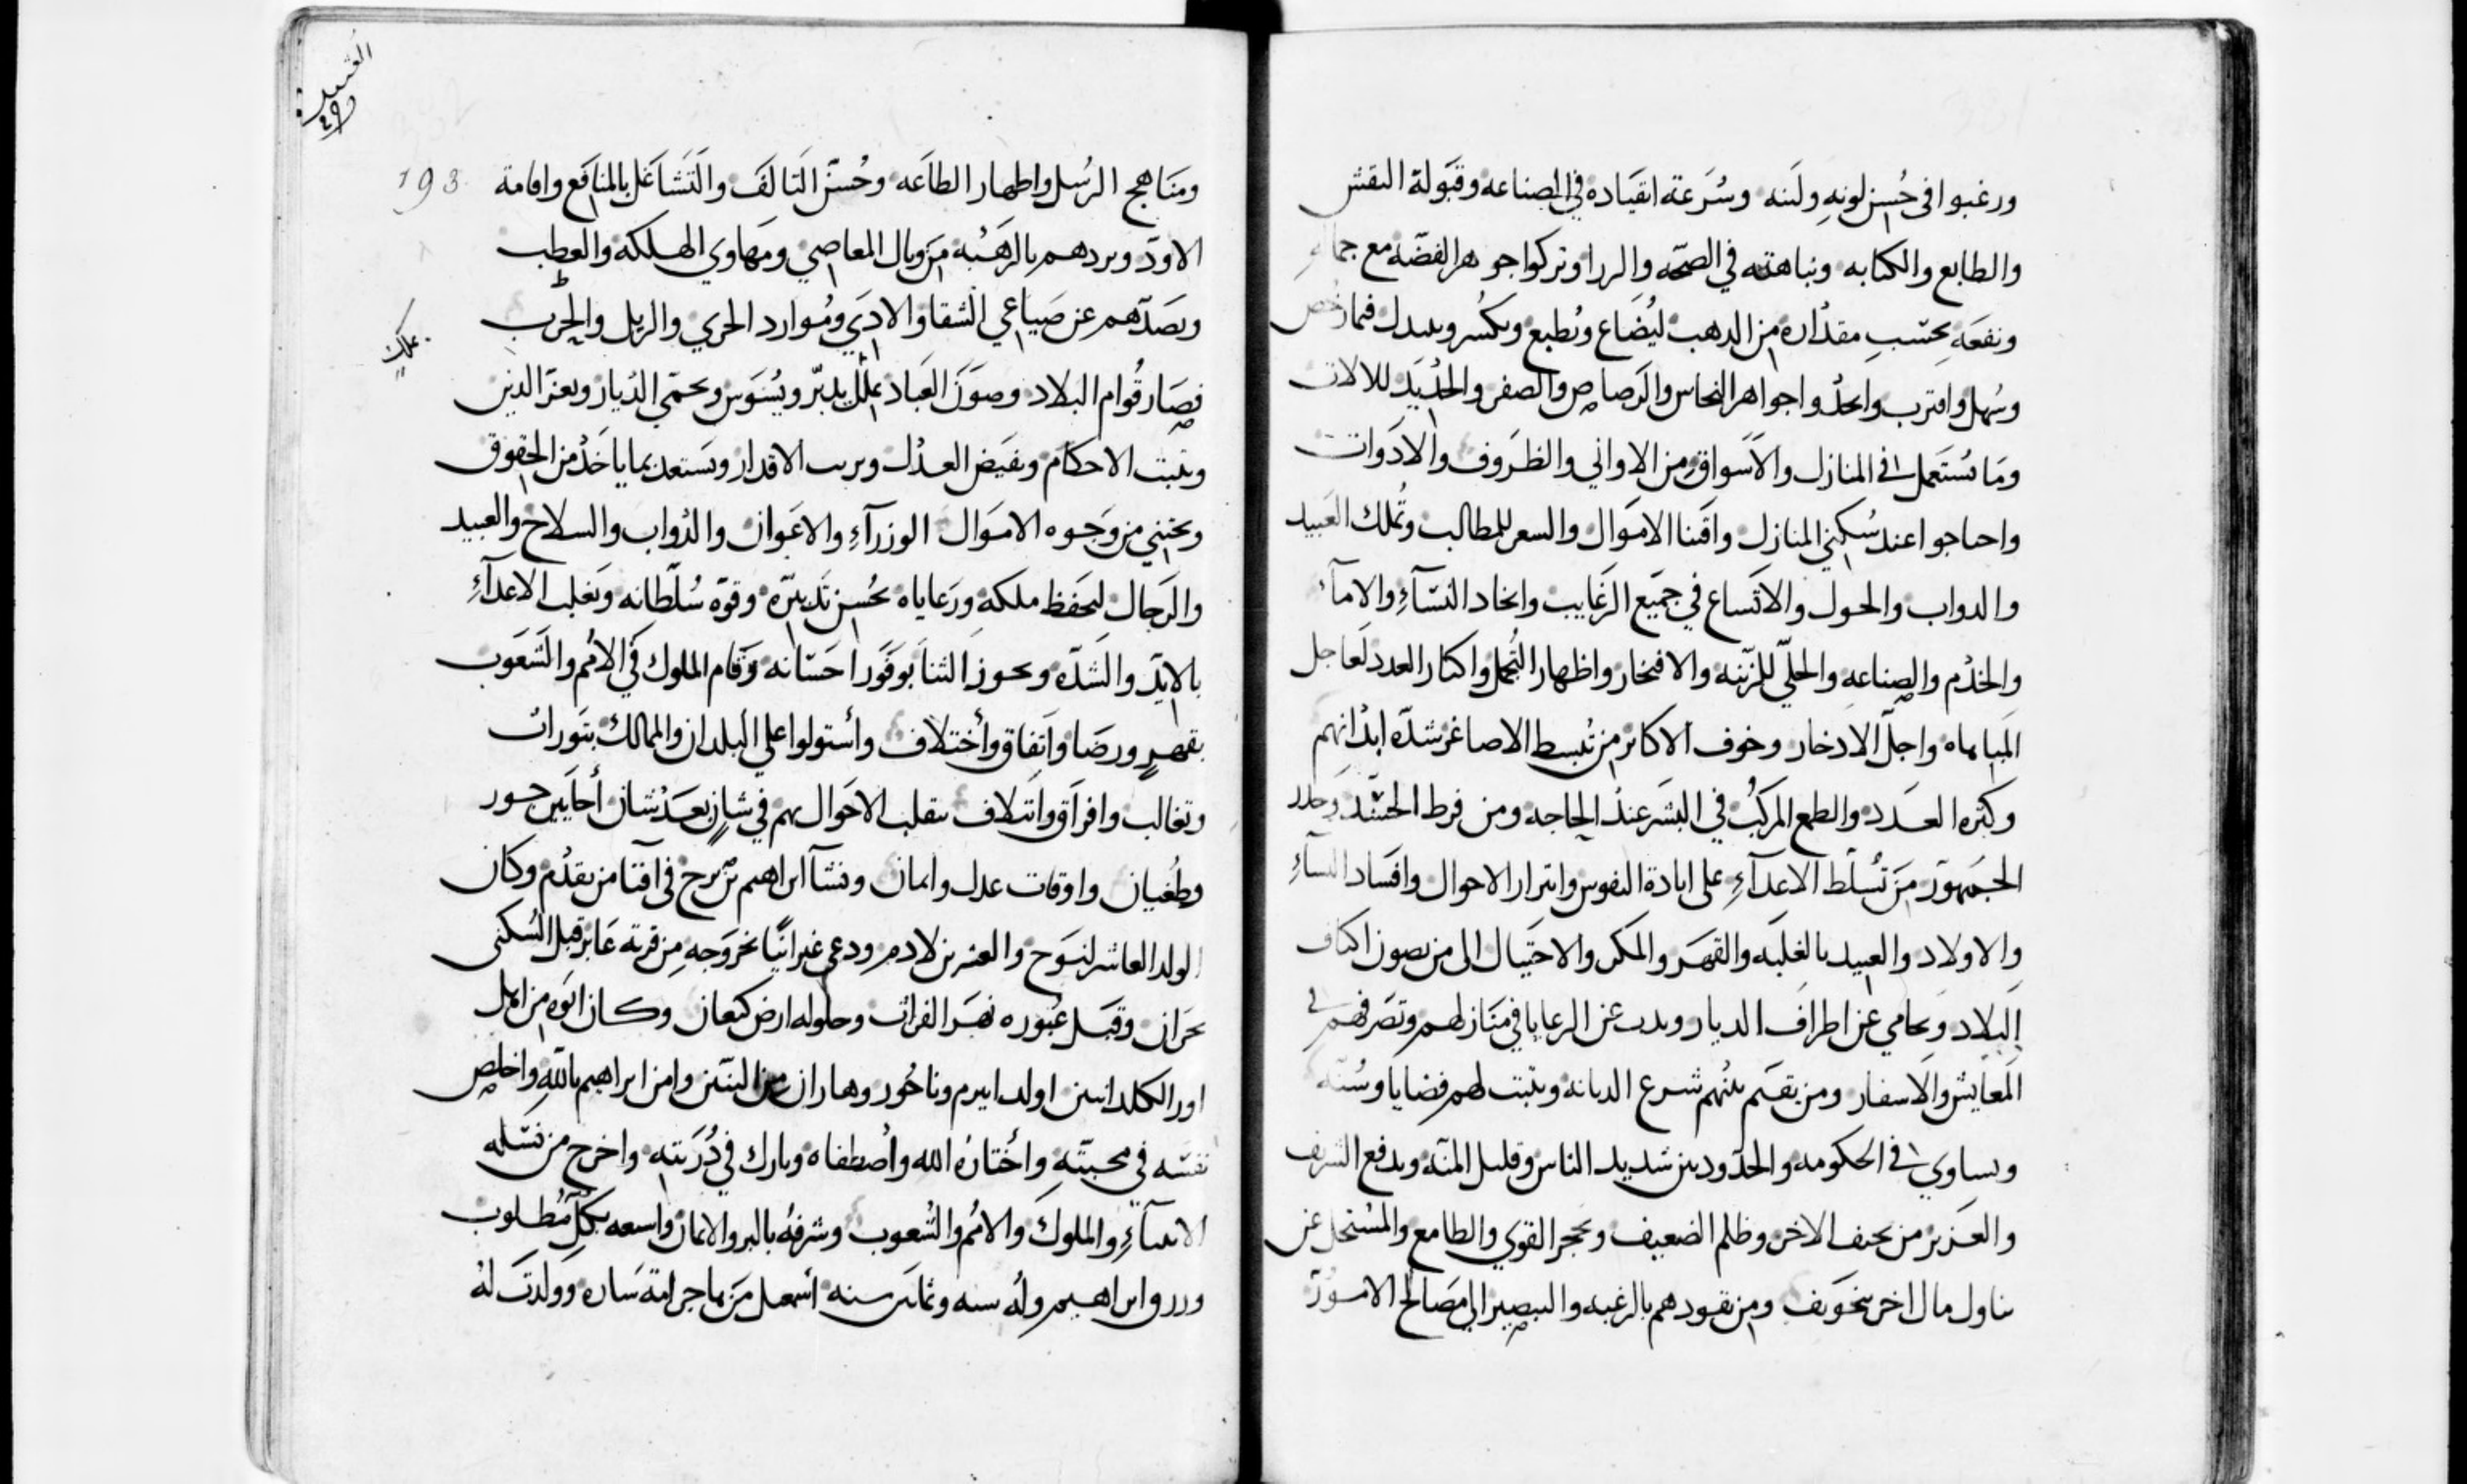 ورغبوا فى حُسن لونهِ ولَينه وسُرَعته انقيَاده في الصناعه وقبَولة النقش
والطابع والكتابه ونباهته في الصحّه والردا وتركوا جوهر الفضّه مع جماله
ونفعَهِ بحسَبِ مقدَاره من الدهب ليُضَاع وتُطبع وتكسُر وببدل فما رخُص
وسُهل واقترب واتحدُوا جواهر النحاس والرَصاص والصفر والحدَيد للالات
ومَا تستَعمل في المنازل والاَسَواق من الاواني والظرَوف والادَوات
واحتاجوا عند سُكني المنازل واقتنا الامَوال والسعر للمطالب وتُملك العَبيد
والدواب والحول والاتَساع في جمَيع الرَغايب واتخاد النسَآءِ والامآء
والخدَم والصناعهِ والحليّ للزّينه والافتخار واظهار التجُمل واكثار العدد لعَاجل
المباهاه واجلّ الادخار وخوف الاكابر من تبسط الاصاغر شدّه ابدَانهم
وكثره العَدد والطمع المركبُ في البشَر عند الحاجه ومن فرط الحسَد وحدر
الجَمهَور منَ تسُلَط الاعدآءِ على ابادة النفوس وابتزاز الاحوال وافسَاد النسآءِ
والاولاد والعبيد بالغلبَه والقهَر والمكر والاحتيَال الى من يصون اكناف
البلاد ويحَامي عن اطراف الديار ويدب عن الرعايا في منَازلهم وتصَرفهم في
المعَايش والاسفار ومن يقسَم بينهُم شرع الديانه ويثبت لهم قضايا وسُننه
ويساوي في الحكومه والحدَود بين شديد الناس وقليل المنّه ويدفع الشريف
والعَزيز من يحيف الاخر وظلم الضعيف ويحجر القوي والطامع والمستحل عن
تناول مال اخر بتخَويف ومن يقودهم بالرغبه والتبصير الي مصَالح الامَورَ
العتيده
٢٩
193
ومنَاهج الرسُل واظهار الطاعَه وحُسنّ التَالفَ والتَشاغَل بالمنَافع واقامة
الاودّ ويردهم بالرهَبُه منَ وبال المعاصي ومَهاوي الهلكه والعطب
ويصَدّهم عن صَياعي الشقا والادَي ومُوارد الخزي والزيل والحرب
فصَار قُوام البلاد وصوَنَ العبَاد بملك يدبّر ويسُوَس ويحمّي الدَيار ويعزّ الدين
ويثبت الاحكام ويفيَض العدَل ويرتب الاقدار ويسَتعد بما ياخَدُ من الحقوق
ويجتني من وَجَوه الامَوال الوزرآءِ والاعَوان والدَواب والسلاح والعبيد
والرَجال لحَفظ ملكهَ ورَعاياه بحُسن تَدبيّره وقوّه سُلطانه ويَغلب الاعدآءِ
بالايّد والشدّه ويحوز الثنا بوفوَر احسَانه وقام الملوك في الامُم والشعَوب
بقهرٍ ورضَا واتَفاق وأختلاف وأستولوا علي البلدان والممالك بثوَرات
وتغالب وافرَاق وائتلاف بتقلب الاحَوال بهم في شان بعَد شان أحَايين جور
وطغُيان واوقات عدل وايمان ونشآ ابراهيم بن ترح في افتنا من يقدُم وكان
الولد العاشر لنوَح والعشرين لادم ودعي عبرانيًّا بخروَجهِ من قرية عَابر قبل السُكني
بحَران وقبَل عُبَوره نهَر الفرات وحلوله ارض كنعان وكان ابَوه من اهل
اور الكلدانيين اولد ابيرم وناحُور وهاران من البنين وامن ابراهيم بالله واخلص
نفسَه في محبتّهِ وأختارُه الله وأصطفاه وبارك في دُرَيته واخرج من نسَله
الانبيآءِ والملوكَ والامُم والشُعوب وشرفهُ بالبر والايمان واسعه بكلّ مطَلوب
ورزق ابراهيم ولهُ سته وثمانين سنه أسَمعيل منَ هاجر امة سَاره وولدتَ لهُ
بملك